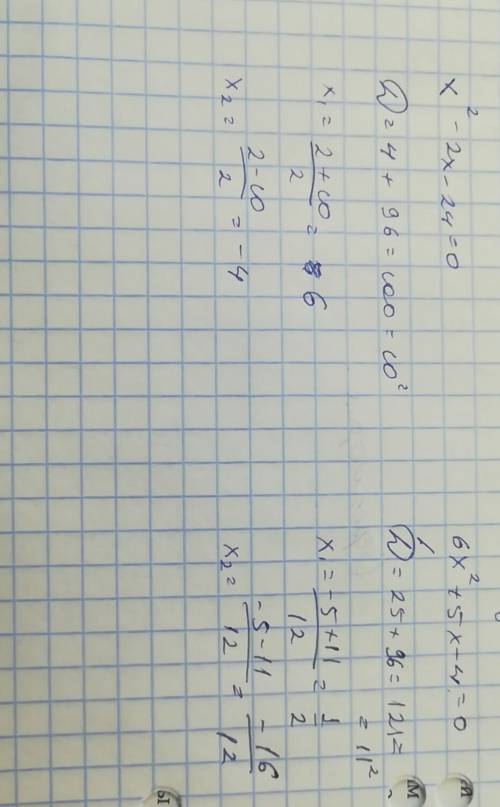 x² - 2x - 24 = 0
D = 4 + 96 = 100 = 10²
x₁ = (2 + 10)/2 = 6
x₂ = (2 - 10)/2 = -4
6x² + 5x - 4 = 0
D = 25 + 96 = 121 =
= 11²
x₁ = (-5 + 11)/12 = 1/2
x₂ = (-5 - 11)/12 = -16/12
й
м
ы